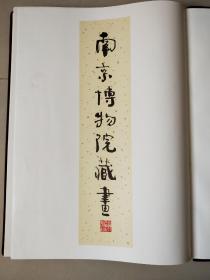 南京博物院藏畫